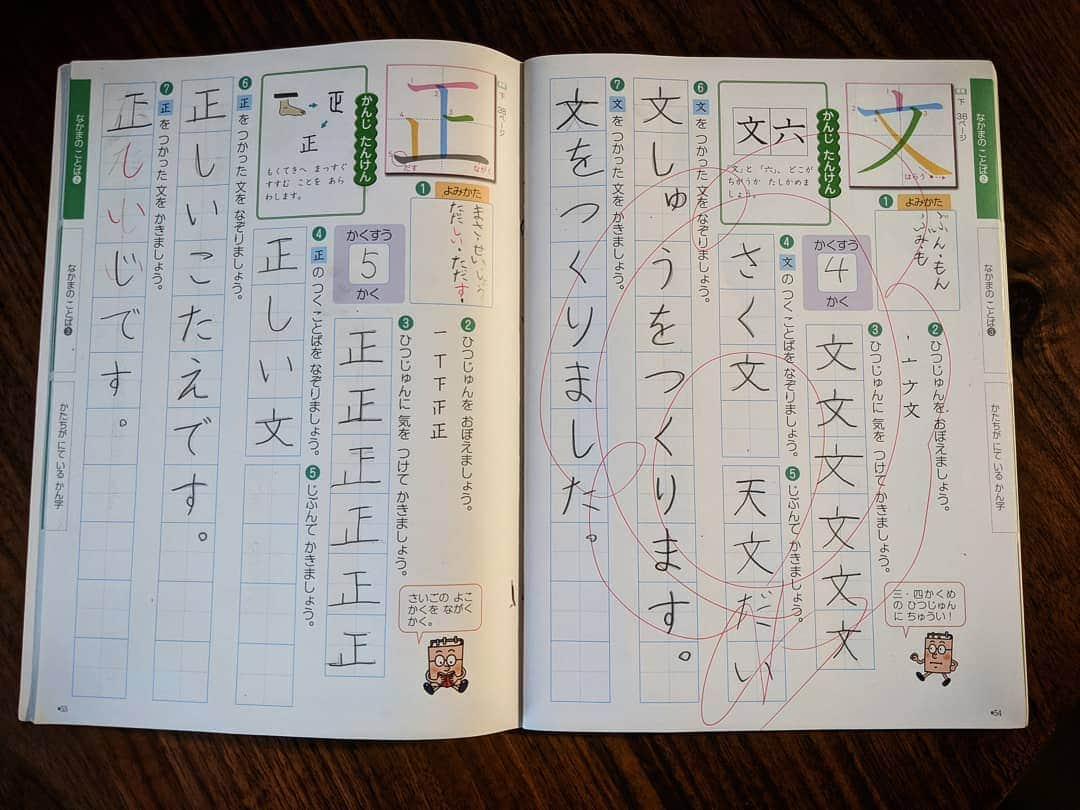 なかまの ことば❷
なかまの ことば❸
かたちが にて いる かん字
下 38ページ
文
1
2
3
はらう
かんじ たんけん
文 六
「文」と「六」、どこが
ちがうか たしかめま
しょう。
❶ よみかた
ぶん・もん
ふみも
かくすう
4
かく
❷ ひつじゅんを おぼえましょう。
丶 亠 ナ 文
❸ ひつじゅんに 気を つけて かきましょう。
文 文 文 文 文 文
❹ 文 の つく ことばを なぞりましょう。
さく文
❺ じぶんで かきましょう。
天文だい
❻ 文 を つかった 文を なぞりましょう。
文しゅうをつくります。
❼ 文 を つかった 文を かきましょう。
文をつくりました。
三・四かくめ
の ひつじゅん
に ちゅうい!
54
下 38ページ
正
1
2
3
4
5
だす
ながく
かんじ たんけん
正
正
もくてきへ まっすぐ
すすむ ことを あら
わします。
❶ よみかた
まさ・せい・しょう
ただしい・ただす・
かくすう
5
かく
❷ ひつじゅんを おぼえましょう。
一 丅 下 正 正
❸ ひつじゅんに 気を つけて かきましょう。
正 正 正 正 正 正
❹ 正 の つく ことばを なぞりましょう。
正しい文
❺ じぶんで かきましょう。
❻ 正 を つかった 文を なぞりましょう。
正しいこたえです。
❼ 正 を つかった 文を かきましょう。
正しいじです。
さいごの よこ
かくを ながく
かく。
なかまの ことば❷
なかまの ことば❸
かたちが にて いる かん字
53